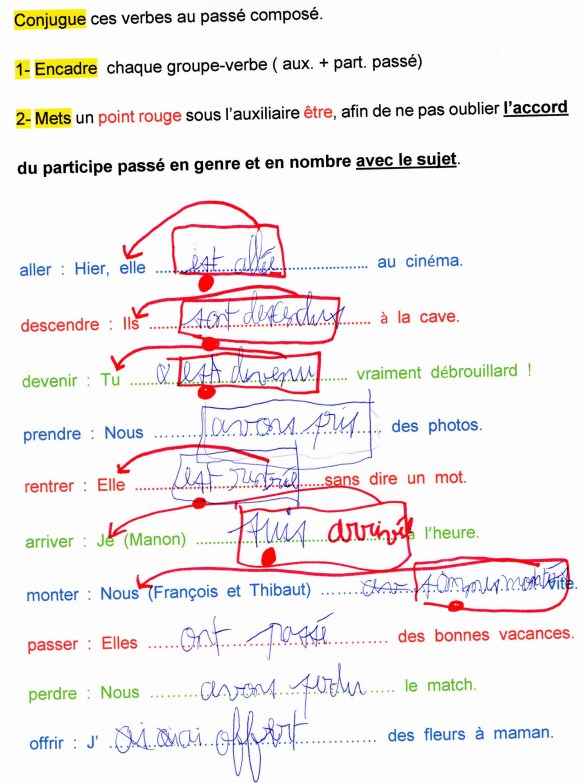 Conjugue ces verbes au passé composé.
1- Encadre chaque groupe-verbe ( aux. + part. passé)
2- Mets un point rouge sous l'auxiliaire être, afin de ne pas oublier l'accord
du participe passé en genre et en nombre avec le sujet.
aller : Hier, elle est allée au cinéma.
descendre : Ils sont descendus à la cave.
devenir : Tu est devenu vraiment débrouillard !
prendre : Nous avons pris des photos.
rentrer : Elle est rentrée sans dire un mot.
arriver : Je (Manon) suis arrivée l'heure.
monter : Nous (François et Thibaut) montés vite.
passer : Elles ont passé des bonnes vacances.
perdre : Nous avons perdu le match.
offrir : J' ai offert des fleurs à maman.